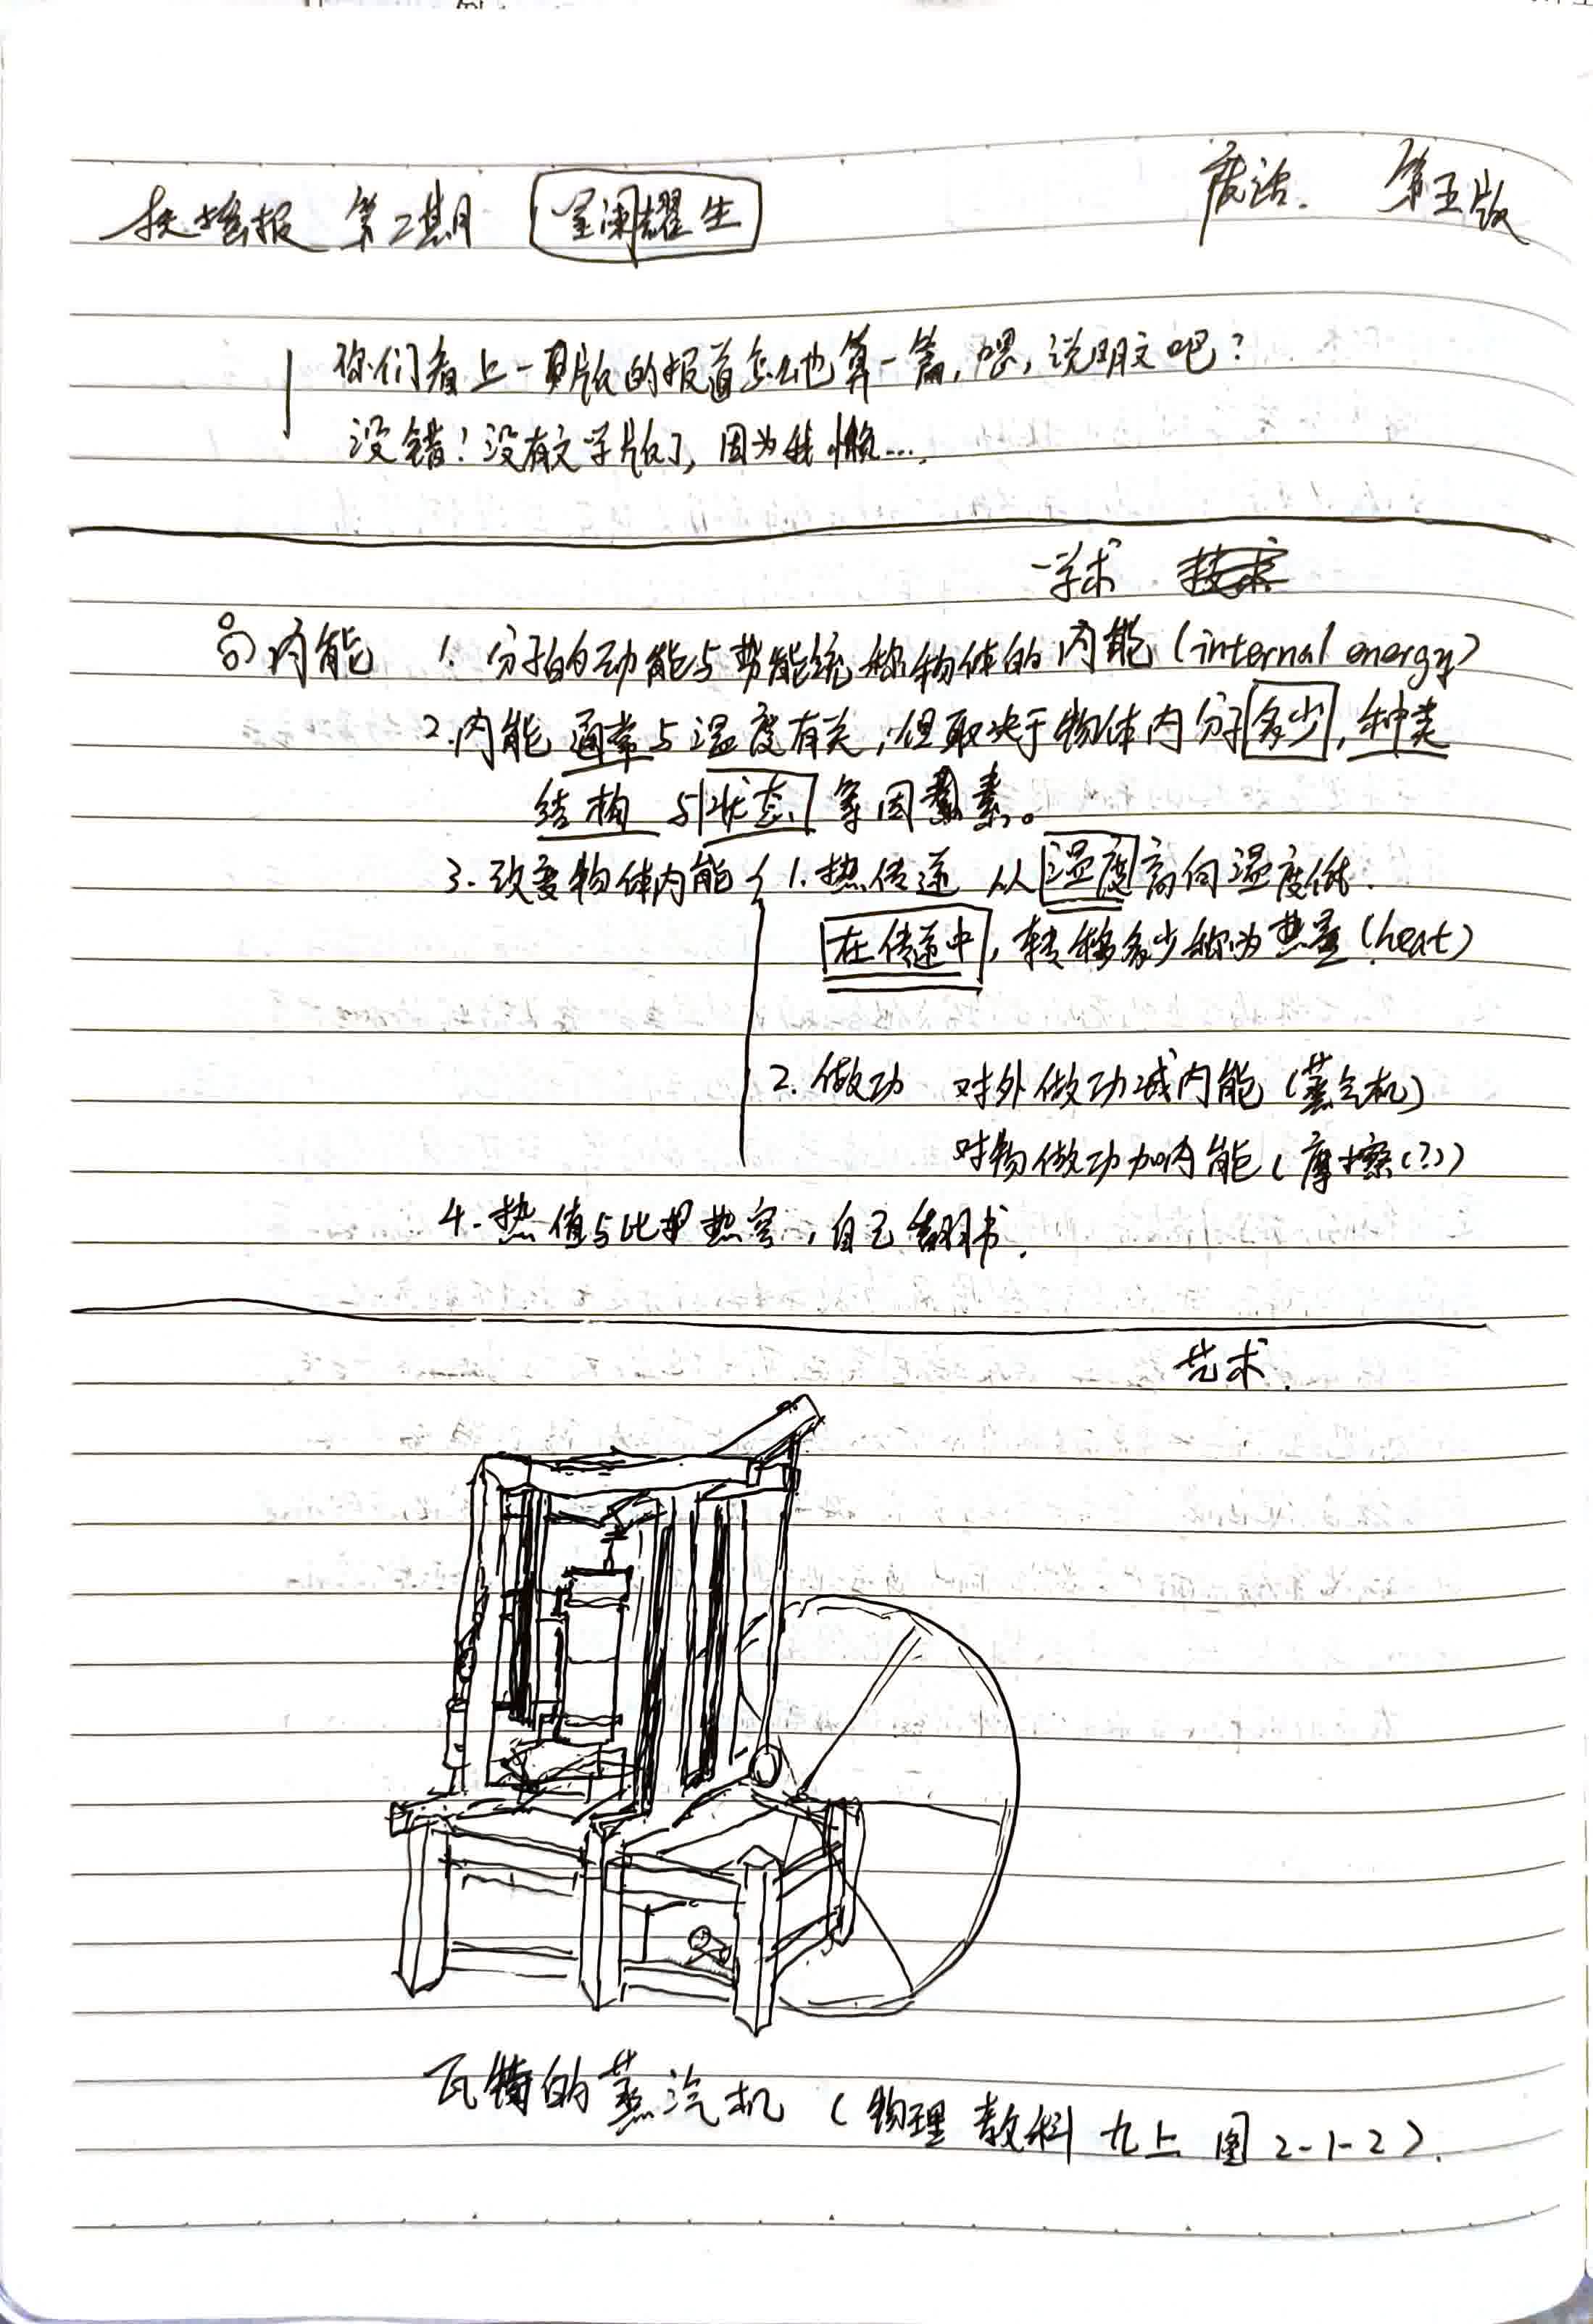 扶摇报 第二期 星阑耀生 废话. 第五版
你们看上一版的报道怎么也算一篇,嗯,说明文吧?
没错!没有文学版了,因为我懒....
学术
内能 1. 分子的动能与势能统称物体的内能(internal energy)
2.内能 通常与温度有关,但取决于物体内分子多少,种类
结构 与状态 等因素。
3. 改变物体内能 { 1.热传递 从温度高向温度低.
在传递中,转移多少称为热量(heat)
2. 做功 对外做功减内能(蒸气机)
对物做功加内能(摩擦(?))
4. 热值与比热容,自己翻书.
艺术.
瓦特的蒸汽机 (物理教科 九上 图 2-1-2).